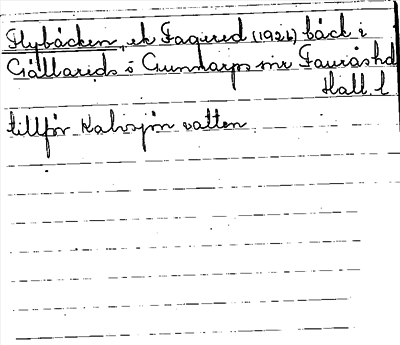 Flybäcken, ek Fagered (1926) bäck i
Gällareds o Gunnarps snr Fauråshd
Hall. l
tillför Kalvsjön vatten